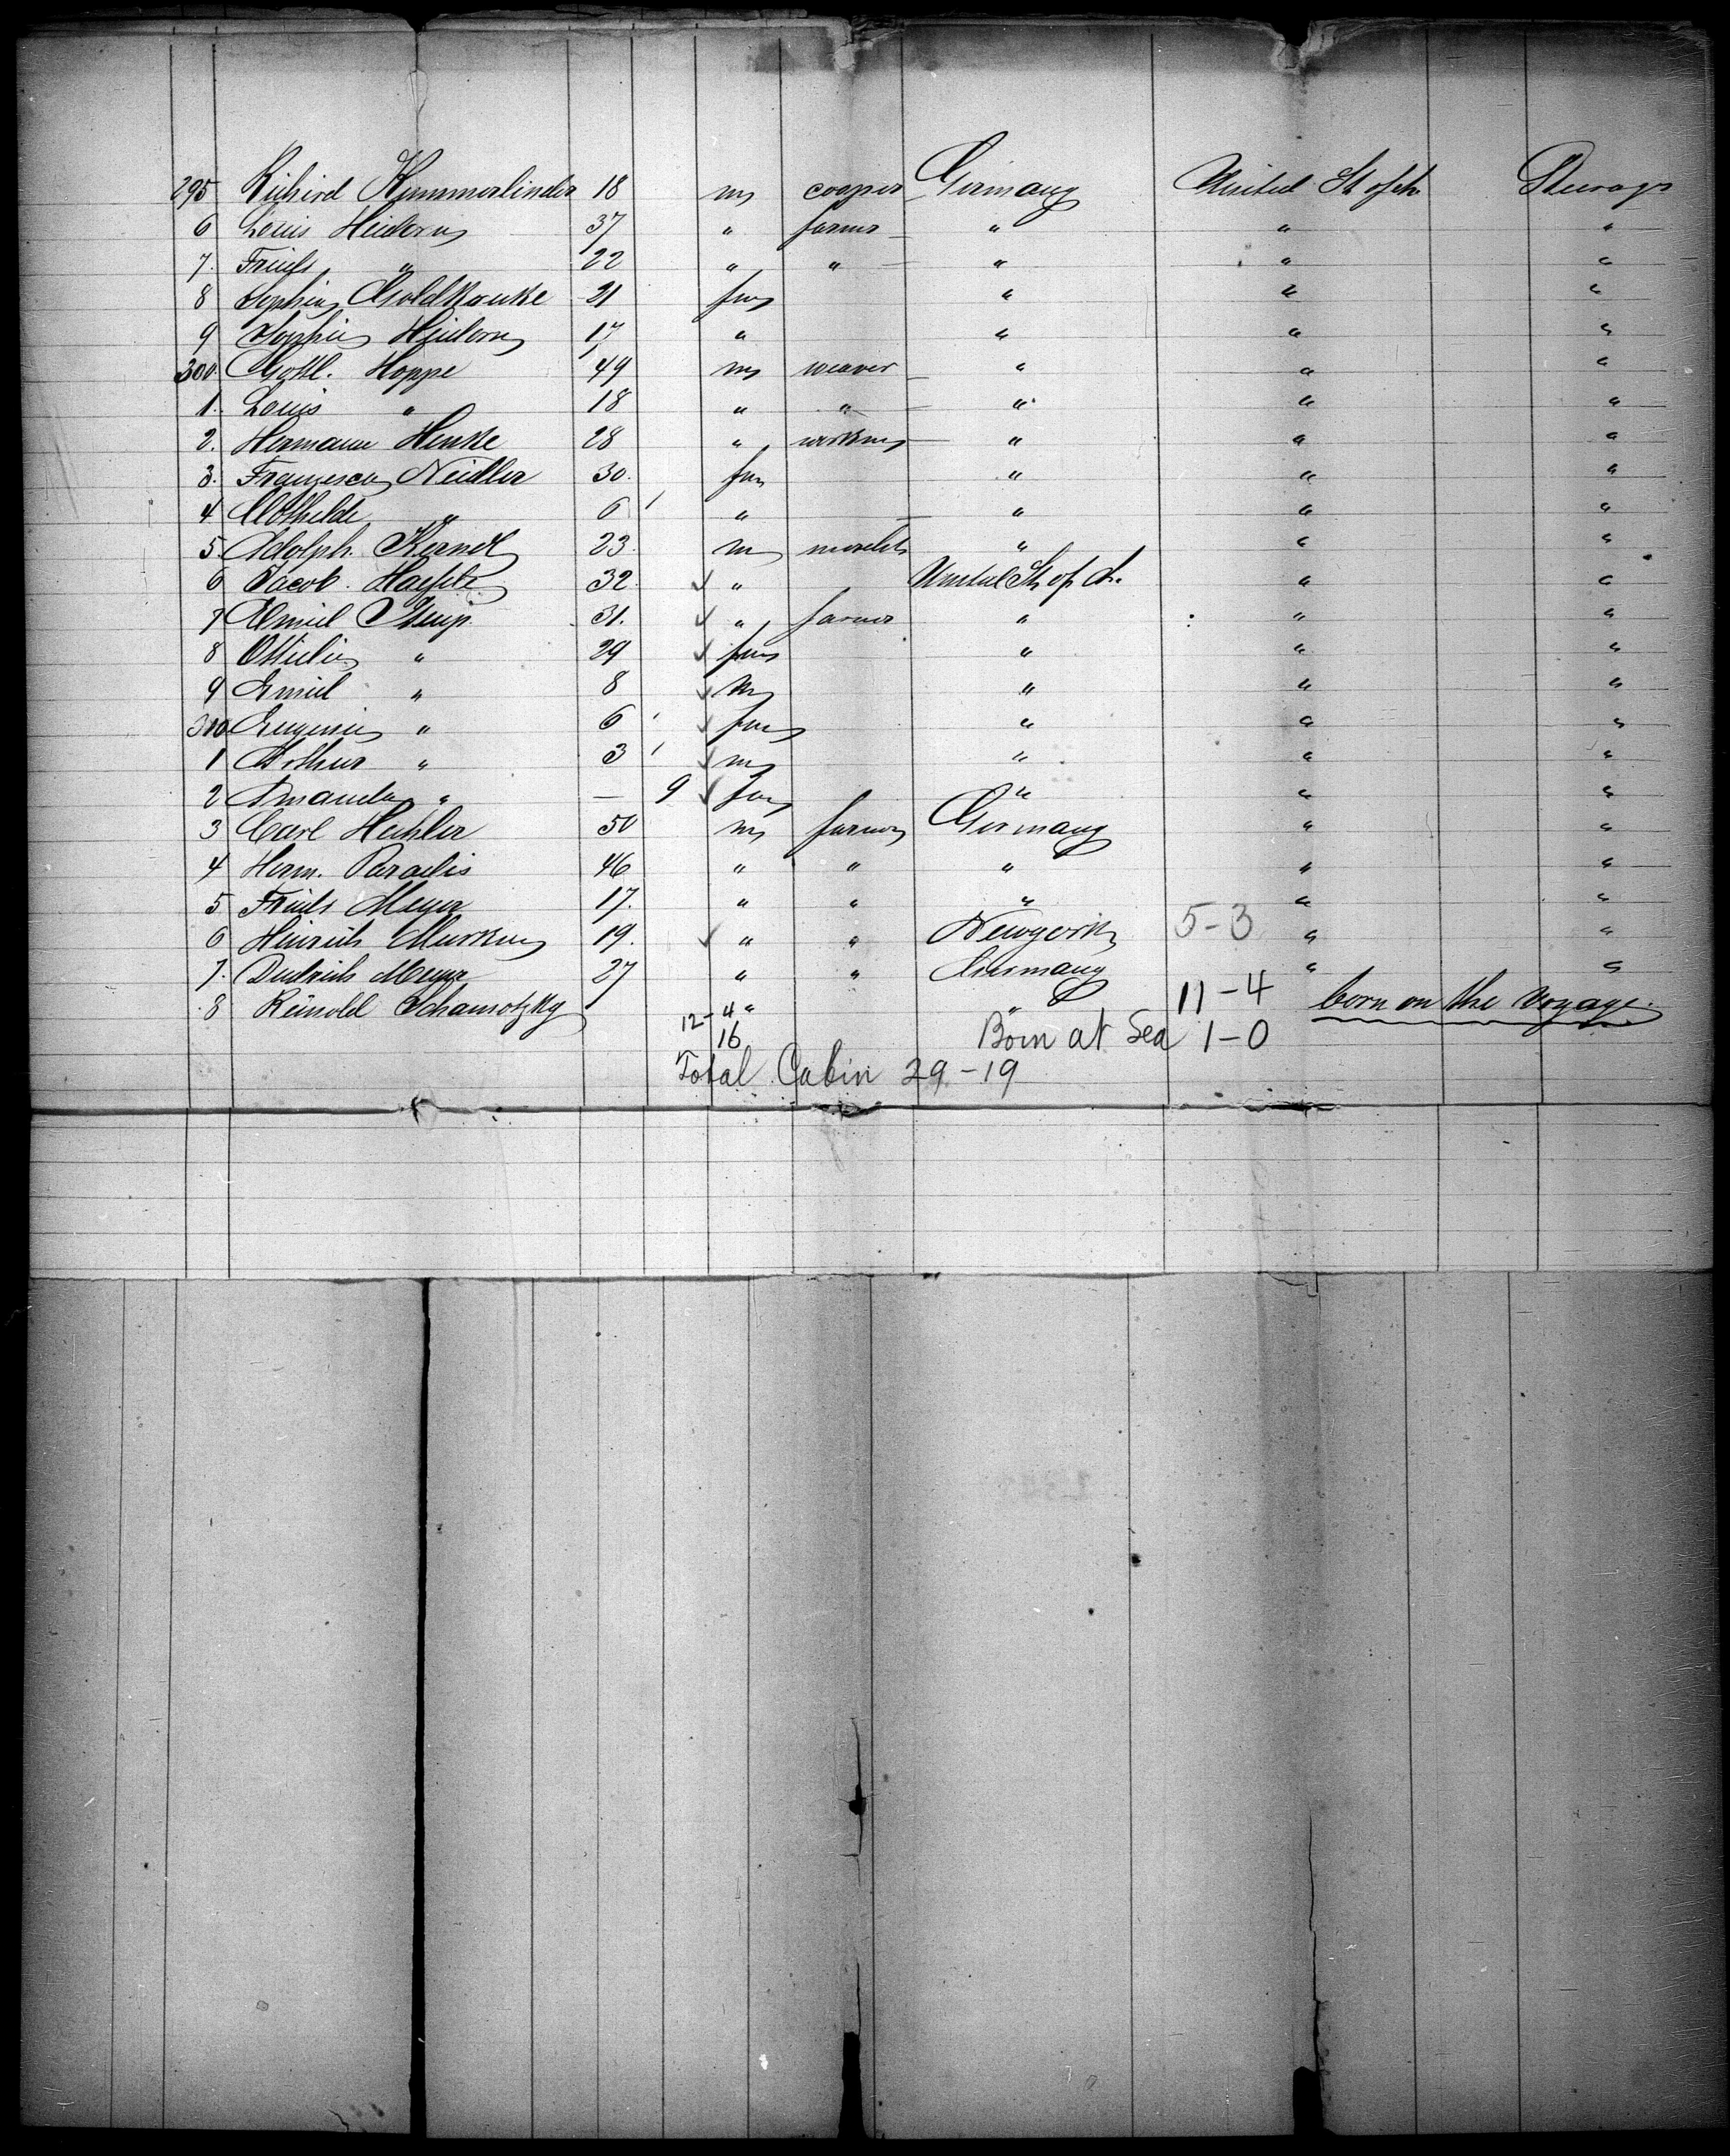 295 Richard Kummerlinder 18 m cooper Germany United St of A Steerage
6 Louis Heidorn 37 " farmer " " "
7. Friedr " 22 " " " " "
8 Sophie Goldkauke 21 fm " " "
9 Sophie Heidorn 17 " " " "
300. Gottl. Hoppe 49 m weaver " " "
1. Louis " 18 " " " " "
2. Hermann Henke 28 " " " "
3. Franzesca Neidler 30. fm " " "
4 Clothilde " 6 " " " "
5. Adolph. Kernel 23. m " " "
6 Jacob 32. " United St of A. " "
7 Emiel 31. " farmer " " "
8 Ottielie " 29 fm " " "
9 Emiel " 8 m " " "
310 Eugenie " 6 fm " " "
1 Arthur " 3 m " " "
2 Amanda " — 9 fm " " "
3 Carl Hechler 50 m farmer Germany " "
4 Herm. Paradis 46 " " " " "
5 Friedr Meyer 17. " " " " "
6 Heinrich 19. " " Newyork 5-3 " "
7. Diedrich Meyer 27 " " Germany " "
8 Reinold Schamotzky " " 11-4 born on the Voyage.
12-4
16 Born at Sea 1-0
Total Cabin 29-19